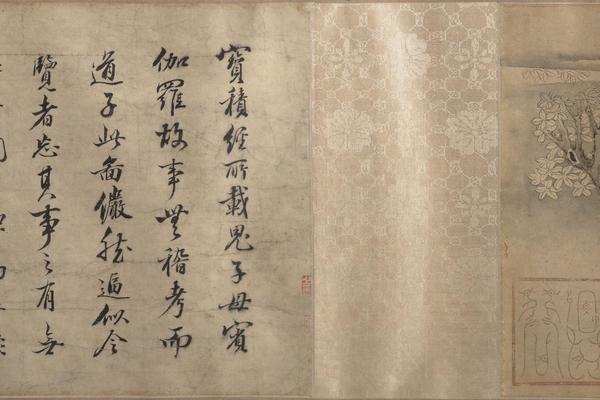 寶積經所載鬼子母賓
伽羅故事無稽考而
道子此圖儼然逼似令
覽者忘其事之有無